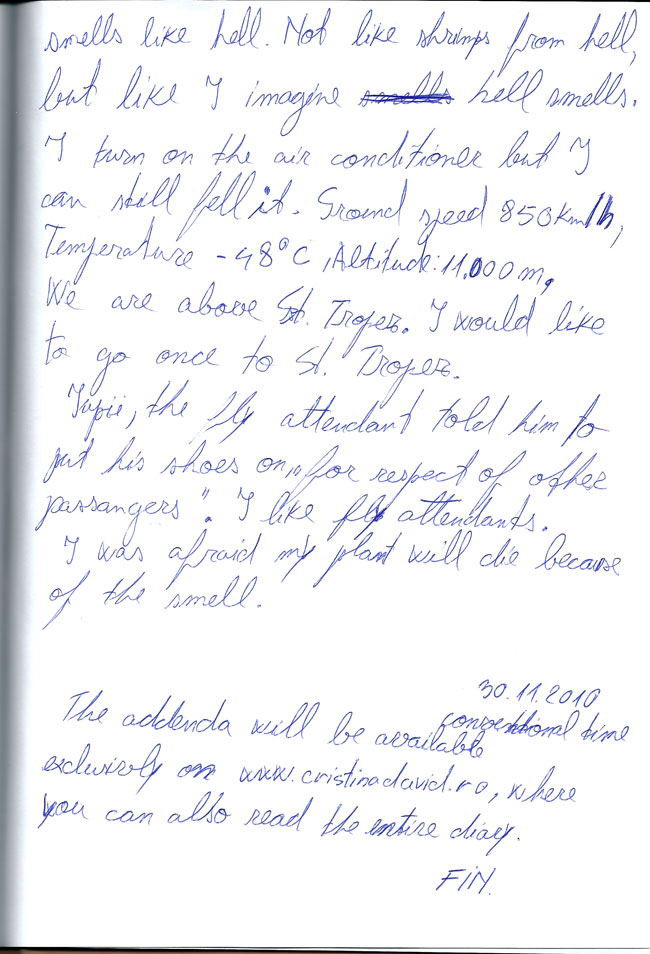 smells like hell. Not like shrimps from hell,
but like I imagine smells hell smells.
I turn on the air conditioner but I
can still fell it. Ground speed 850km/h,
Temperature -48°C, Altitude: 11.000 m,
We are above St. Tropez. I would like
to go once to St. Tropez.
Iupii, the fly attendant told him to
put his shoes on „for respect of other
passangers". I like fly attendants.
I was afraid my plant will die because
of the smell.
30.11.2010
conventional time
The addenda will be available
exclusivly on www.cristinadavid.ro, where
you can also read the entire diary.
FIN.